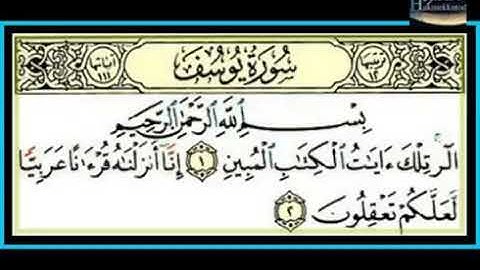 ترتيبها ١٢
سُورَةُ يُوسُفَ
آياتها ١١١
بِسْمِ ٱللَّهِ ٱلرَّحْمَٰنِ ٱلرَّحِيمِ
الٓر تِلْكَ ءَايَٰتُ ٱلْكِتَٰبِ ٱلْمُبِينِ ١ إِنَّآ أَنزَلْنَٰهُ قُرْءَٰنًا عَرَبِيًّا
لَّعَلَّكُمْ تَعْقِلُونَ ٢